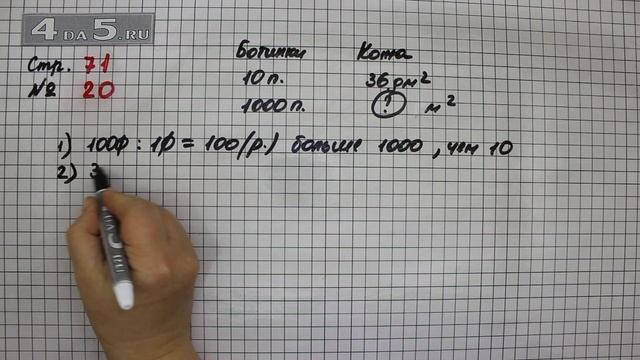 4 DA 5.RU
Стр. 71
№ 20
Ботинки Кожа
10 п. 36 дм²
1000 п. ? м²
1) 1000 : 10 = 100 (р.) больше 1000, чем 10
2) 3